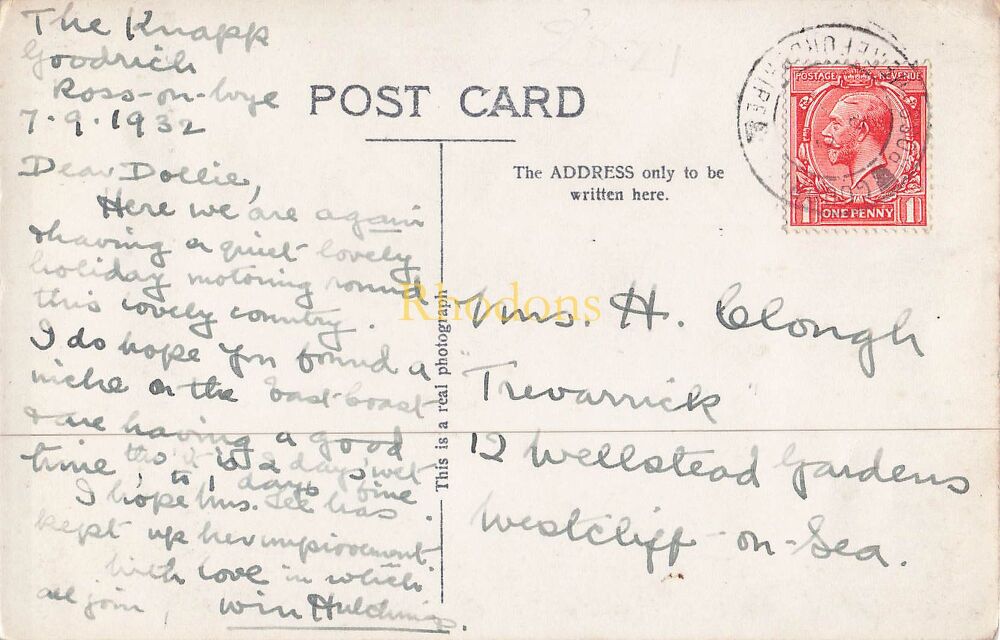 The Knapp
Goodrich
Ross-on-Wye
7.9.1932
Dear Dollie,
Here we are again
& having a quiet lovely
holiday motoring round
this lovely country.
I do hope you found a
niche on the East Coast
& are having a good
time, tho' it is 2 days wet
to 1 days fine.
I hope Mrs. Lee has
kept up her improvement.
With love in which
all join, Win Hutchings.
POST CARD
The ADDRESS only to be
written here.
This is a real photograph
POSTAGE REVENUE
1 ONE PENNY 1
Rhodons
Mrs. H. Clough
"Trevarrick"
12 Wellstead Gardens
Westcliff-on-Sea.